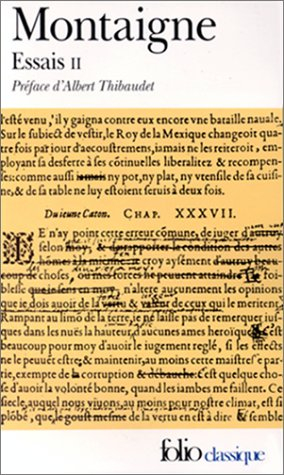 Montaigne
Essais II
Préface d'Albert Thibaudet
l'esté venu, il y gaigna contre eux encore vne bataille nauale.
Sur le subiect de vestir, le Roy de la Mexique changeoit quatre
fois par iour d'accoustremens, iamais ne les reiteroit, em-
ployant sa desferre à ses côtinuelles liberalitez & recompen-
ses: comme aussi iamais ny pot, ny plat, ny vtensile de sa cuisi-
ne, & de sa table ne luy estoient seruis à deux fois.
Du ieune Caton. CHAP. XXXVII.
IE n'ay point cette erreur cômune, de iuger d'autruy
selon moy, & de rapporter la condition des autres
hommes à la mienne croy aysément d'autruy beau-
coup de choses, où mes forces ne peuuent attaindre
n'altere aucunement les opinions
que ie dois auoir de la & de ceux qui le meritent
Rampant au limo de la terre, ie ne laisse pas de remerquer ius-
ques dans les nuës la hauteur d'aucunes ames heroïques: C'est
beaucoup pour moy d'auoir le iugement reglé, si les effects
ne le peuuet estre; & maintenir au moins cette maistresse par-
tie, exempte de la corruption : c'est quelque chose
d'auoir la volonté bonne, quand les iambes me faillent.
Ce siecle, auquel nous viuons, au moins pour nostre climat, est
si plôbé, que le goust mesme de la vertu en est à dire &
folio classique